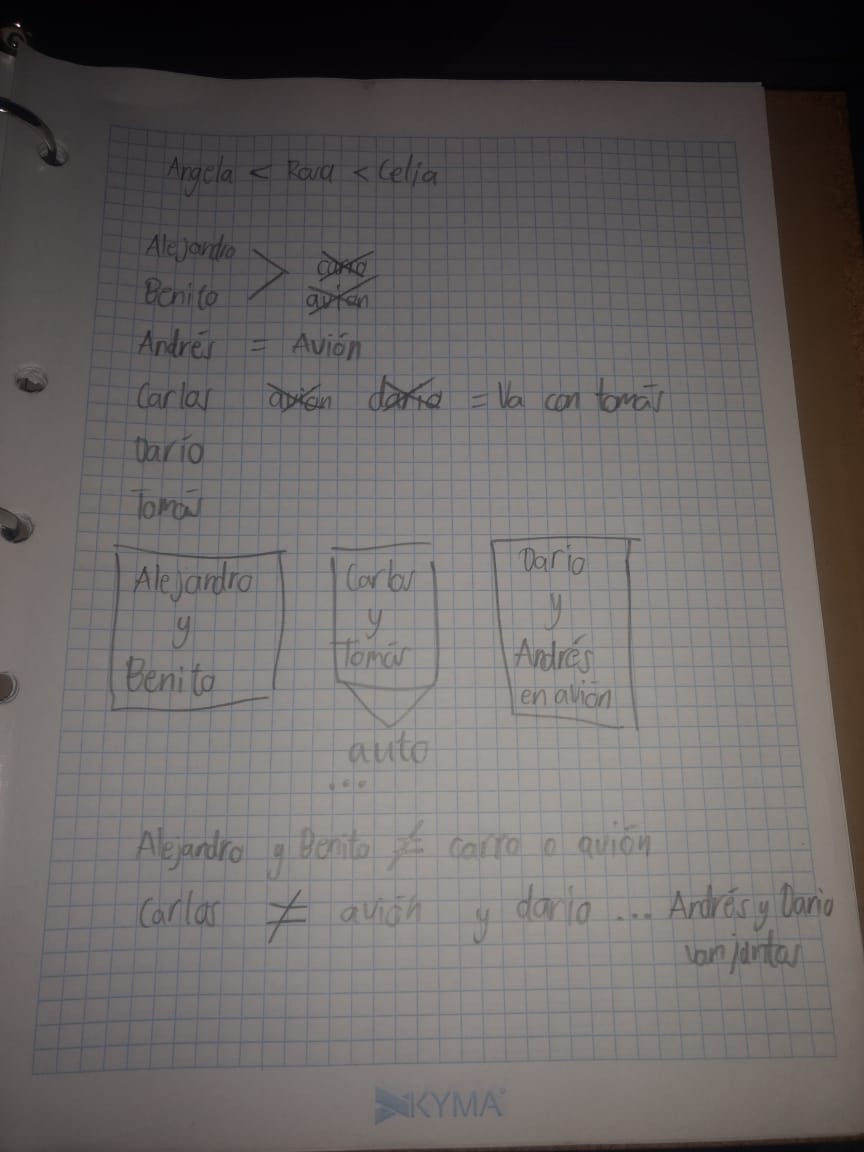 Angela < Rosa < Celia
Alejandro > carro
Benito avión
Andrés = Avión
Carlos avión darío = Va con tomás
Darío
Tomás
Alejandro y Benito
Carlos y Tomás
auto
...
Dario y Andrés en avión
Alejandro y Benito ≠ carro o avión
Carlos ≠ avión y darío ... Andrés y Dario
van juntos
KYMA